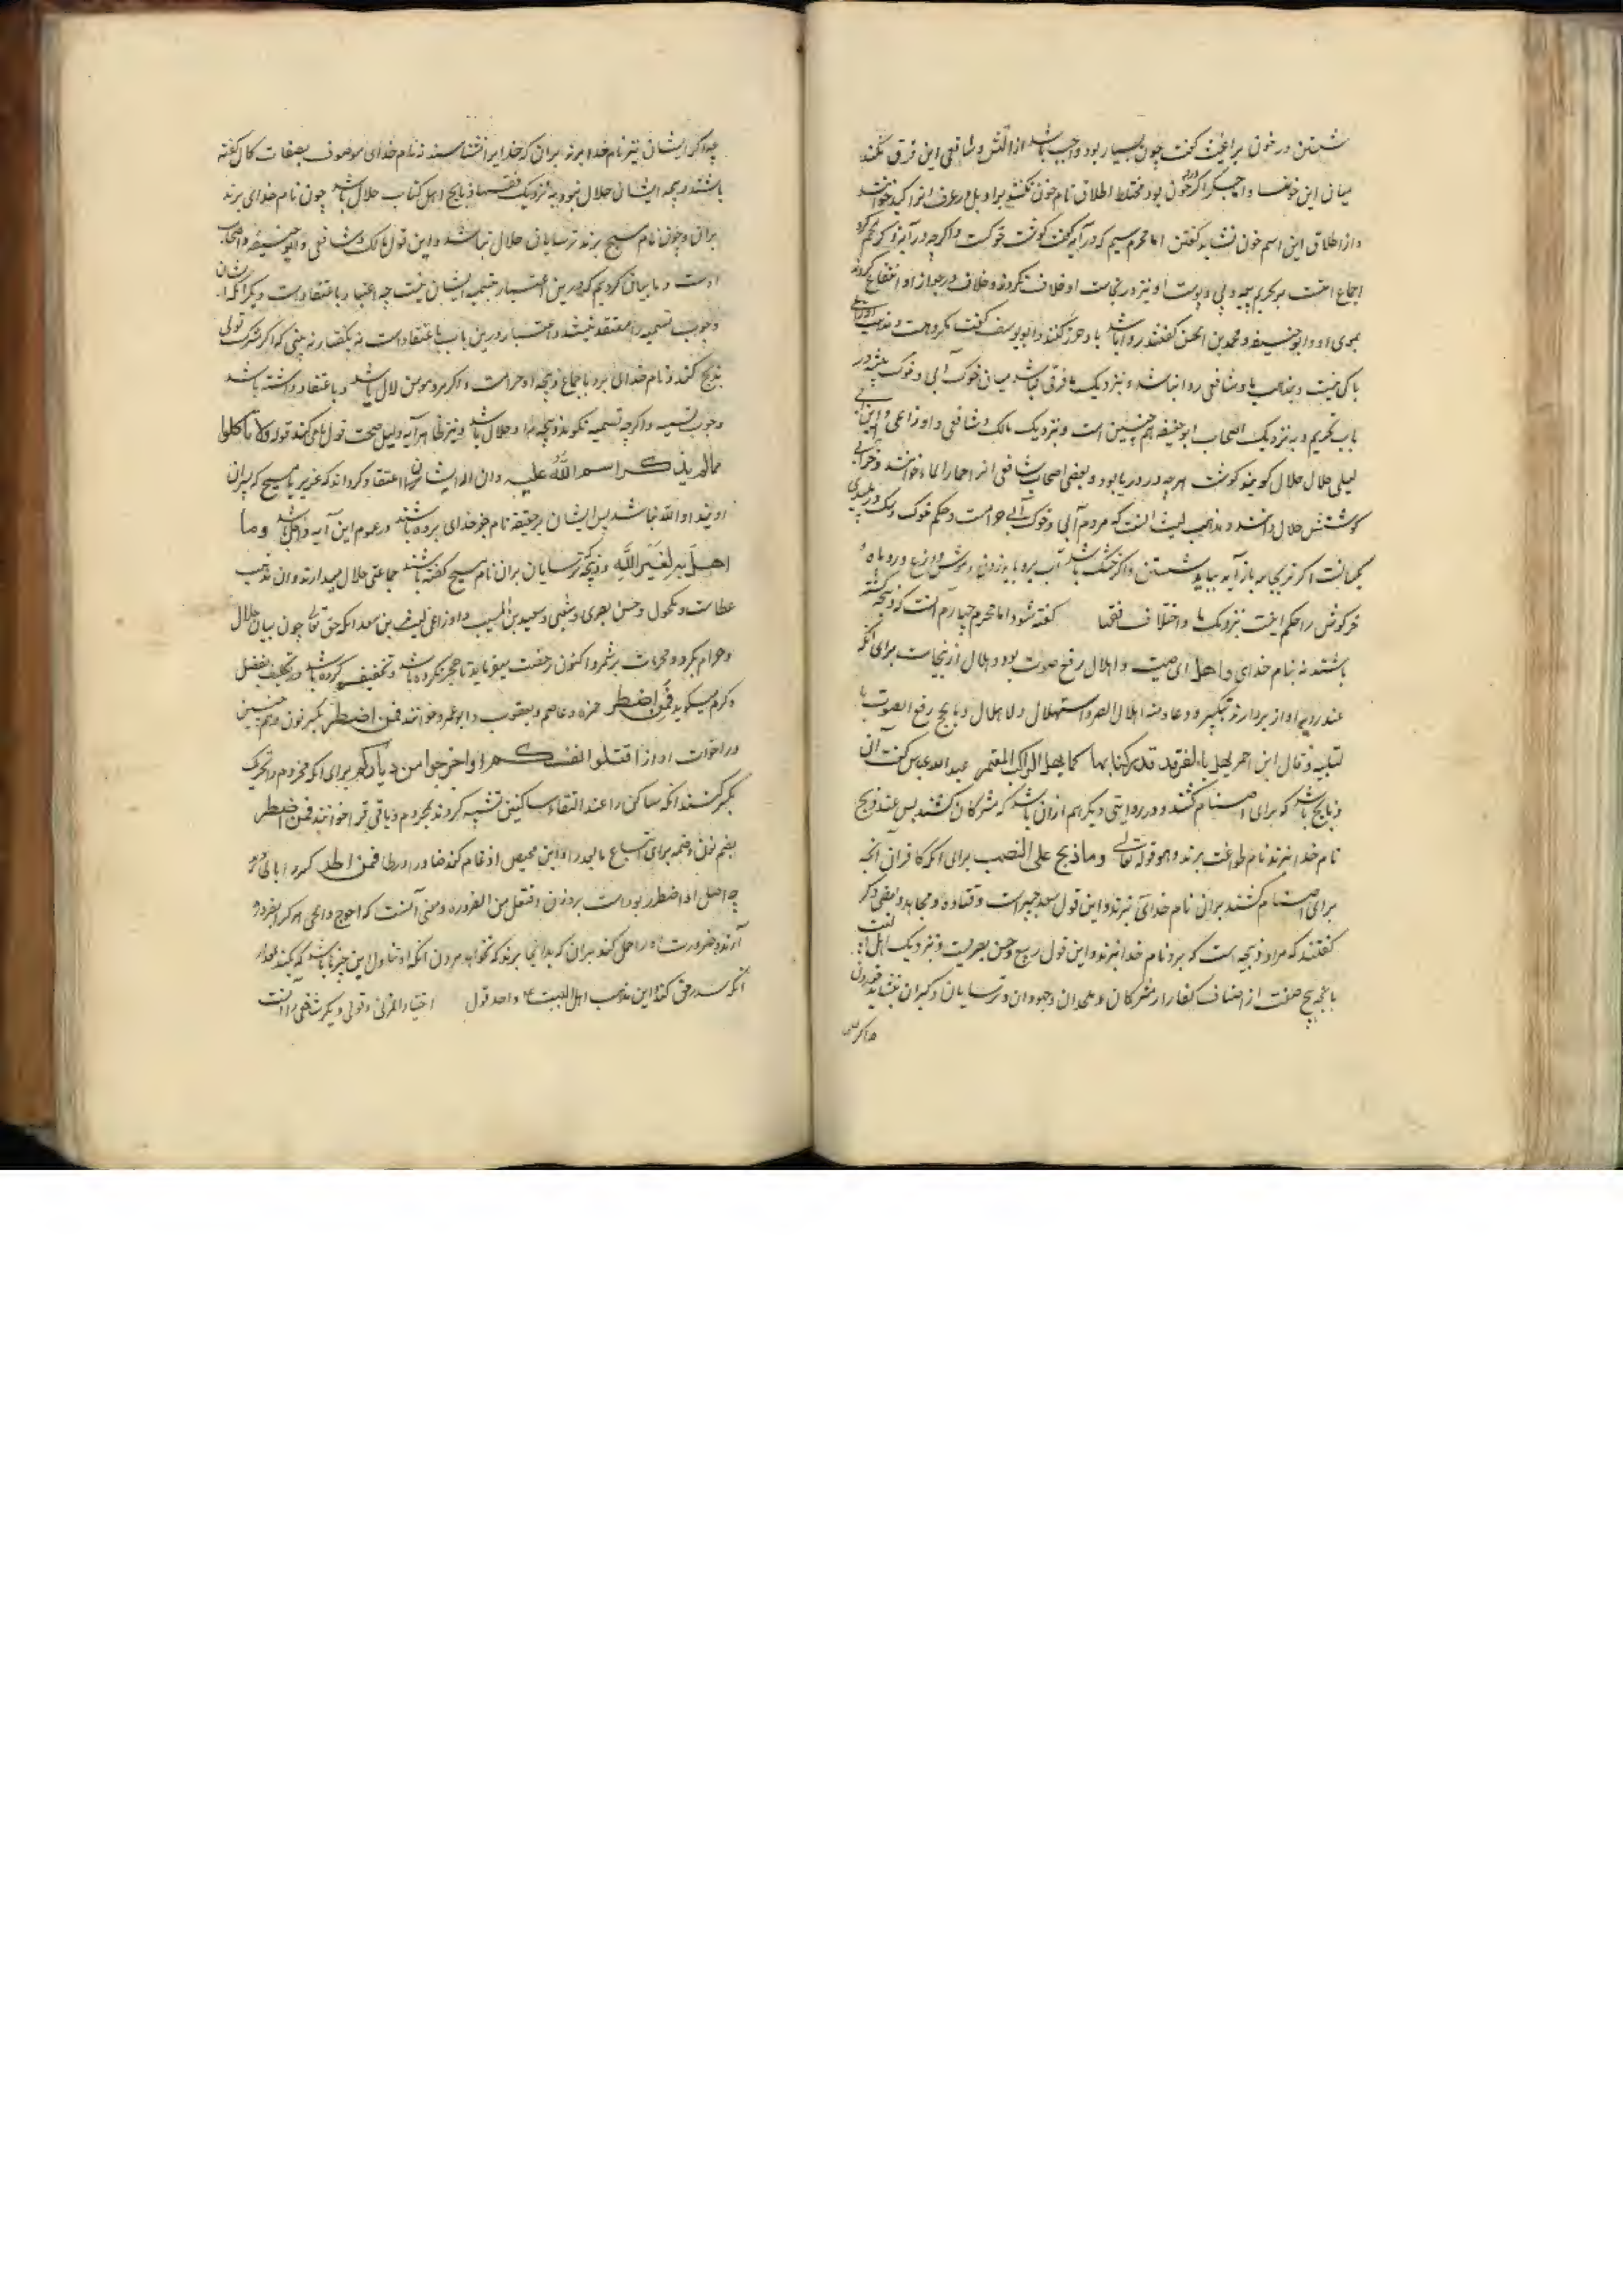 شستن و در خون براغیث گفت چون بسیار بود واجب باشد ازالتش و شافعی این فرق نکند
میان این خونها و اگر خون بود مختلط اطلاق نام خون نکنند برو بل در عرف
و از اطلاق این اسم خون نشاید گفتن اما محرم سیم که در آیه گفت گوشت خوکست و اگر چه در آیه ذکر لحم کرد
اجماع امت بر تحریم پیه و پی و پوست او نیز در نجاست او خلاف نکردند و خلاف در جواز او انتفاع کردند
بموی او و ابو حنیفه و محمد بن الحسن گفتند روا باشد باو خرز کنند و ابو یوسف گفت مکروهست و مذهب اوزاعی
باکی نیست و بمذهب ما و شافعی روا نباشد و بنزدیک ما فرقی نباشد میان خوک آبی و خوک بیشه در
باب تحریم و به نزدیک اصحاب ابو حنیفه هم چنین است و بنزدیک مالک و شافعی و اوزاعی و ابن ابی
لیلی حلال حلال گویند گوشت هر چه در دریا بود و بعضی اصحاب شافعی انرا حمار الماء خوانند و
گوشتش حلال دانند و مذهب لیث انست که مردم آبی و خوک آبی حرامست و حکم خوک و سگ در پلیدی
یکسانست اگر تر بجامه باز آید بباید شستن و اگر خشک باشد آب برو باید زدن و موش و وزغ و روباه و
خرگوش را حکم اینست بنزدیک ما و اختلاف فقها گفته شود اما محرم چهارم آنست که ذبیحه کشته
باشند نه بنام خدای و اهل ای صیت و اهلال رفع صوت بود و هلال ازینجاست برای آنکه
عند رویه اواز بردارند بتکبیر و دعا و منه اهلال الصبی و استهلال و الاهلال و بالحج رفع الصوت با
لتلبیه و قال ابن احمر یهل بالفرقد رکبانها کما یهل الراکب المعتمر عبد الله عباس گفت آن
ذبایح باشد که برای اصنام کشند و در روایتی دیگر هم ازان باشد که مشرکان کشند پس عند ذبح
نام خدا نبرند نام طواغیت برند و هو قوله تعالی وما ذبح علی النصب برای آنکه کافران آنچه
برای اصنام کشند بران نام خدای نبرند و این قول سعد جبیر است و قتاده و مجاهد و بعضی دگر
گفتند که مراد ذبیحه است که برو نام خدا نبرند و این قول ربیع و حسن بصریست و بنزدیک اهل البیت
ذبایح هیچ صنف از اصناف کفار از مشرکان و ملحدان و جهودان و ترسایان و گبران نشاید خوردن
چه اگر
چه اگر ایشان نیز نام خدا برند بران که خدایرا نشناسند نه نام خدای موصوف بصفات کمال گفته
باشند ذبیحه ایشان حلال نبود و به نزدیک فقها ذبایح اهل کتاب حلال باشد چون نام خدای برند
بران و چون نام مسیح برند ترسایان حلال نباشد و این قول مالک و شافعی و ابو حنیفه و اصحاب
اوست و ما بیان کردیم که درین اعتبار تسمیه ایشان نیست چه اعتبار باعتقاد است دیگر آنکه ایشان
وجوب تسمیه را معتقد نیند و اعتبار درین باب باعتقاد است نه بگفتار نه بینی که اگر مشرک تولی
ذبح کند و نام خدای برد باجماع ذبیحه او حرامست و اگر مرد مومن لال باشد و باعتقاد داشته باشد
وجوب تسمیه و اگر چه تسمیه نگوید ذبیحه او حلال باشد و نیز ظاهر آیه دلیل صحت قول ما میکند قوله ولا تأکلوا
مما لم یذکر اسم الله علیه وان الله ایشان را اعتقاد کرده اند که عزیر یا مسیح که پسران
اویند او الله نباشد پس ایشان بر حقیقه نام جز خدای برده باشند در عموم این آیه داخل باشد وما
اهل به لغیر الله و ذبیحه که ترسایان بران نام مسیح گفته باشند جماعتی حلال میدارند و ان مذهب
عطاست و مکحول و حسن بصری و شعبی و سعید بن المسیب و اوزاعی و لیث بن سعد انکه حق تعالی چون بیان حلال
و حرام بکرد و محرمات برشمرد اکنون رخصت میفرماید تا حجر نکرده باشد و تخفیف کرده باشد در تکلیف بفضل
و کرم میگوید فمن اضطر حمزه و عاصم و یعقوب و ابو عمرو خوانند فمن اضطر بکسر نون و هم چنین
در اخوات او از اقتلوا انفسکم او اخرجوا من دیارکم برای آنکه مجزوم را تحریک
بکسر کنند انکه ساکن را عند التقاء ساکنین تشبیه کردند بمجزوم و باقی قرا خوانند فمن اضطر
بضم نون و ضمه برای اتباع ما بعد را و ابن محیصن ادغام کند ضاد را در طا فمن اطر
چه اصل او اضطرر بودست بر وزن افتعل من الضروره و معنی آنست که احوج و الجی هر که را بضرورة
آرند و ضرورت او را حمل کند بران که بدانجا برند که نخواهد مردن انکه او تناول این چیزها باشد که بکند مقدار
انکه سد رمق کند و این مذهب اهل البیت ع و احد قول اختیار المزنی و قولی دیگر شافعی را آنست